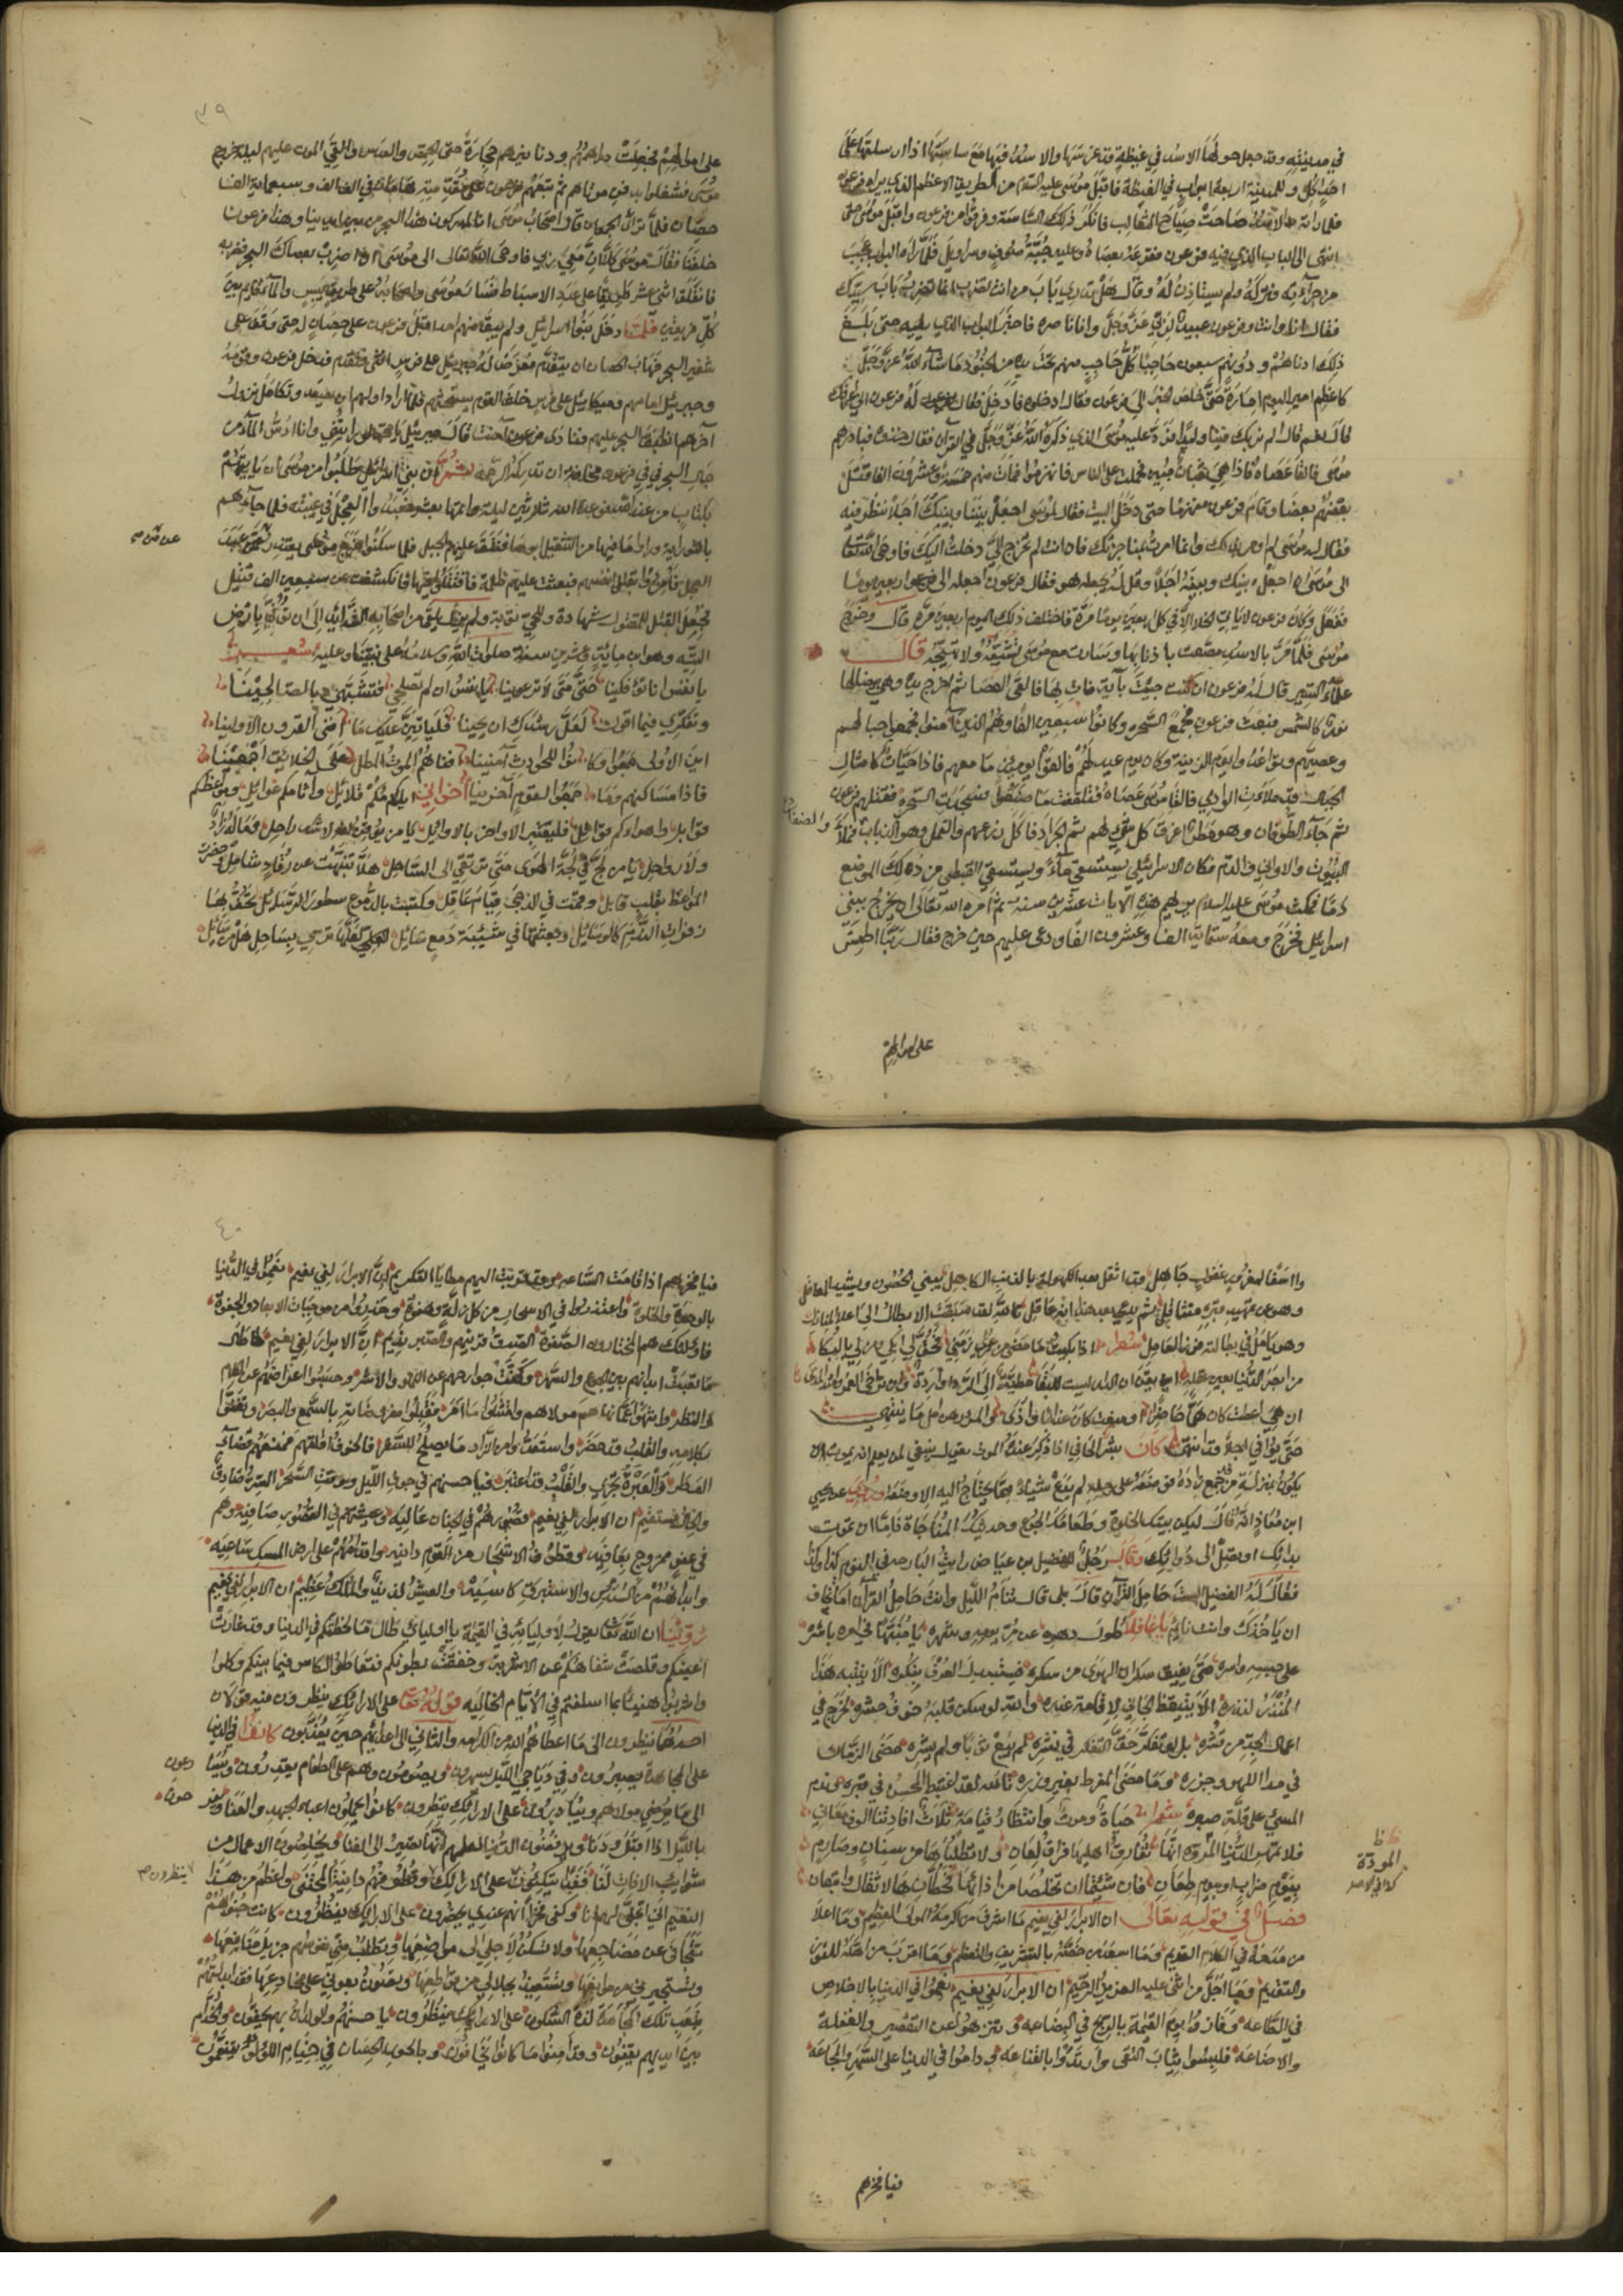 في مدينته وقد جعل حولها الاسد في غيظة قد غرسها والاسد فيها مع ساستها اذا ارسلتها على
احد اكل وللمدينة اربعة ابواب في الغيظة فاقبل موسى عليه السلام من الطريق الاعظم الذي يراه فرعون
فلما رأته الاسد صاحت صياح الثعالب فانكر ذلك الساسة وفرقوا من فرعون واقبل موسى حتى
انتهى الى الباب الذي فيه فرعون فقرعه بعصاه وعليه جبة صوف وسراويل فلما رآه البواب عجب
من جرأته فتركه ولم يستأذن له وقال هل تدري باب من انت تضرب انما تضرب باب سيدك
فقال انا وانت وفرعون عبيد لربي عز وجل وانا ناصره فاخبر البواب الذي يليه حتى بلغ
ذلك ادناهم ودونهم سبعون حاجبا كل حاجب منهم تحت يده من الجنود ما شاء الله عز وجل
كاعظم امير اليوم امارة حتى خلص الخبر الى فرعون فقال ادخلوه فادخل فقال له فرعون اني اعرفك
قال نعم قال الم نربك فينا وليدا فرد عليه موسى الذي ذكره الله عز وجل في القرآن فقال خذوه فبادرهم
موسى فالقى عصاه فاذا هي ثعبان مبين فحملت على الناس فانهزموا فمات منهم خمسة وعشرون الفا قتل
بعضهم بعضا وقام فرعون منهزما حتى دخل البيت فقال لموسى اجعل بيننا وبينك اجلا ننظر فيه
فقال له موسى لم اومر بذلك وانما امرت بمناجزتك فان انت لم تخرج الي دخلت اليك فاوحى الله تعالى
الى موسى ان اجعل بينك وبينه اجلا وقل له يجعله هو فقال فرعون اجعله الى اربعين يوما
ففعل وكان فرعون لا يأتي الخلاء الا في كل اربعين يوما مرة فاختلف ذلك اليوم اربعين مرة قال وخرج
موسى فلما مر بالاسد مصعت باذنابها وسارت مع موسى تشيعه ولا تهيجه قال
علماء السير قال له فرعون ان كنت جئت بآية فات بها فالقى العصا ثم اخرج يده وهي بيضاء لها
نور كالشمس فبعث فرعون فجمع السحرة وكانوا سبعين الفا وهم الذين آمنوا فجمعوا حبالهم
وعصيهم وتواعدوا يوم الزينة وكان يوم عيد لهم فالقوا يومئذ ما معهم فاذا حيات كامثال
الجبال قد ملأت الوادي فالقى موسى عصاه فتلقفت ما صنعوا فسجدت السحرة فقتلهم فرعون
ثم جاء الطوفان وهو مطر اغرق كل شيء لهم ثم الجراد فاكل زرعهم والقمل وهو الدباب فملأ
والضفادع
البيوت والاواني والدم فكان الاسرائيلي يستقي ماء ويستقي القبطي من ذلك الموضع
دما فمكث موسى عليه السلام يريهم هذه الآيات عشرين سنة ثم امره الله تعالى ان يخرج ببني
اسرائيل فخرج ومعه ستمائة الف وعشرون الفا ودعى عليهم حين خرج فقال ربنا اطمس
على اموالهم
٣٩
على اموالهم فجعلت دراهمهم ودنانيرهم حجارة حتى الحمص والعدس والقي الموت عليهم ليلة خروج
موسى فشغلوا بدفن موتاهم ثم تبعهم فرعون على مقدمته هامان في الف الف وسبعمائة الف
حصان فلما تراءى الجمعان قال اصحاب موسى انا لمدركون هذا البحر من بين ايدينا وهذا فرعون
خلفنا فقال موسى كلا ان معي ربي فاوحى الله تعالى الى موسى ان اضرب بعصاك البحر فضربه
فانفلق اثنى عشر طريقا على عدد الاسباط فسار موسى واصحابه على طريق يبس والماء قائم بين
كل فريقين فلما دخل بنوا اسرائيل ولم يبق منهم احد اقبل فرعون على حصان له حتى وقف على
شفير البحر فهاب الحصان ان يتقدم فعرض له جبريل على فرس انثى فتقدم فدخل فرعون وقومه
وجبريل امامهم وميكائيل على فرس خلف القوم يستحثهم فلما اراد اولهم ان يصعد وتكامل نزول
آخرهم انطبق البحر عليهم فنادى فرعون آمنت قال جبريل يا محمد لو رأيتني وانا ادس الماء من
حال البحر في في فرعون مخافة ان تدركه الرحمة ثم ان بني اسرائيل طلبوا من موسى ان يأتيهم
بكتاب من عند الله فوعده الله ثلاثين ليلة واتمها بعشر فعبدوا العجل في غيبته فلما جاءهم
بالتوراة ورأوا ما فيها من التثقيل ابوها فنتق عليهم الجبل فلما سكنوا خرج موسى يعتذر عمن عبد
عن من صح
العجل فامروا بقتل انفسهم فبعثت عليهم ظلمة فاقتتلوا فيها فانكشفت عن سبعين الف قتيل
فجعل القتل للمقتول شهادة وللحي توبة ولم يزل يلقى من اصحابه الشدائد الى ان توفي بارض
التيه وهو ابن مائة وعشرين سنة صلوات الله وسلامه على نبينا وعليه شعر
يا نفس انا تؤفكينا حتى متى لا ترعوينا يا نفس ان لم تصلحي فتشبهي بالصالحينا
وتفكري فيما اقول لعل رشدك ان يحينا فليأتين عليك ما افنى القرون الاولينا
اين الاولى جمعوا وكانوا للحوادث آمنينا افناهم الموت المطل على الخلائق اجمعينا
فاذا مساكنهم وما جمعوا لقوم آخرينا اخواني ايامكم قلائل وآثامكم غوائل ومواعظكم
قواتل واهواؤكم قواتل فليعتبر الاواخر بالاوائل يا من يوقن انه لا شك راحل وماله زاد
ولا رواحل يا من لج في لجة الهوى متى ترتقي الى الساحل هلا تنبهت عن رقاد شامل وحضرت
المواعظ بقلب قابل وقمت في الدجى قيام عاقل وكتبت بالدموع سطور الرسائل تحف بها
زفرات الندم كالوسائل وبعثتها في سفينة دمع سائل لعلها ترسي بساحل هل من سائل
وااسفا لمغرور غفول جاهل قد اثقل بعد الكهولة بالذنب الكاهل يبني الحصون ويشيد المعاقل
وهو عن تمهيد قبره متثاقل ثم يدعي بعد هذا انه عاقل تالله لقد سبقت الابطال الى اعلا المنازل
وهو يامل في بطالته فوز العامل شعر اذا بكيت ما مضى من زمني فحق لي ابكي وان لي بالبكا
من ابصر الدنيا بعين عقله ايقن ان الدار ليست للبقا مطية الى الردا واردة وان تراخى العمر وامتد المدى
ان هي اعطت كان هما حاضرا او منعت كان عذابا واذى هو المؤمن امل ما ينتهي
حتى يوافي اجلا قد انتهى كان بشر الحافي اذا ذكر عنده الموت يقول ينبغي لمن يعلم انه يموت ان
يكون بمنزلة من قد جمع زاده فوضعه على رحله لم يدع شيئا مما يحتاج اليه الا وضعه وروي عن يحيى
ابن معاذ انه قال ليكن بيتك الخلوة وطعامك الجوع وحديثك المناجاة فاما ان تموت
بدائك او تصل الى دوائك وقال رجل للفضيل بن عياض رايت البارحة في النوم كذا وكذا
فقال له الفضيل الست حامل القرآن قال بلى قال تنام الليل وانت حامل القرآن اما تخاف
ان ياخذك وانت نائم يا غافلا طول دهره عن مر يومه وشهره يا متيها في امره باشره
على حبيبه وامره متى يفيق سكران الهوى من سكره فيستبدل العرف بنكره الا يتنبه هذا
المنذر لنذره الا يتيقظ الجاني لاقامة عذره والله لو سكن قلبه خوف حشره لخرج في
اعماله الجد من قشره بل لو تفكر حق التفكر في نشره لم يبع ثوبا ولم يشره مضى الزمان
في مدا اللهو وجزره وما مضى المفرط بغير وزره تالله لقد اغتبط المحسن في قبره وندم
المسيء على قلة صبره شعر حياة وموت وانتظار قيامة ثلاث افادتنا الوف معاني
فلا تمهر الدنيا المروءة انها تفارق اهليها فراق لعان ولا تطلباها من سنان وصارم
ظ ظ
المودة
كذا في الاصل
بيوم ضراب ويوم طعان فان شئتما ان تخلصا من اذاتها فحطا بها الاثقال واتبعان
فصل في قوله تعالى ان الابرار لفي نعيم ما اشرف من اكرمه المولى العظيم وما اعلا
من مدحه في الكلام القديم وما اسعد من خصه بالتشريف والتعظيم وما اقرب من اهله للفوز
والتقديم وما اجل من اثنى عليه العزيز الرحيم ان الابرار لفي نعيم نعموا في الدنيا بالاخلاص
في الطاعة وفازوا يوم القيمة بالربح في البضاعة وتنزهوا عن التقصير والغفلة
والاضاعة فلبسوا ثياب التقى وارتدوا بالقناعة وداموا في الدنيا على السهر والمجاعة
فيا فخرهم
٤٠
فيا فخرهم اذا قامت الساعة وقد قربت اليهم مطايا التكريم ان الابرار لفي نعيم نعموا في الدنيا
بالوحدة والخلوة واعتذروا في الاسحار من كل زلة وهفوة وحذروا من موجبات الابعاد والجفوة
فاولئك هم المختارون الصفوة الصدق قرينهم والصبر نديم ان الابرار لفي نعيم طال ما
ما تعبت ابدانهم بين الجوع والسهر وكفت جوارحهم عن اللهو والاشر وحبسوا اعراضهم عن الكلام
والنظر وانتهوا عما نهاهم مولاهم وامتثلوا ما امر فقبلوا مفروضاته بالسمع والبصر وتغنوا
بكلامه والقلب قد حضر واستعدوا من الزاد ما يصلح للسفر فالخوف اقلقهم فمنعهم قضاء
الوطر والعبرة تجري والقلب قد اعتبر فيا حسنهم في جوف الليل ووقت السحر السر صادق
والحال مستقيم ان الابرار لفي نعيم قصورهم في الجنان عالية وعيشتهم في القصور صافية وهم
في عفو ممزوج بعافية وقطوف الاشجار من القوم دانية واقدامهم على ارض المسك ساعية
وابدانهم من السندس والاستبرق كاسية والعيش لذيذ والملك عظيم ان الابرار لفي نعيم
روينا ان الله تعالى يقول لاوليائه في القيمة يا اوليائي طال ما لحظتكم في الدنيا وقد غارت
اعينكم وقلصت شفاهكم عن الاشربة وخفقت بطونكم فتعاطوا الكاس فيما بينكم وكلوا
واشربوا هنيئا بما اسلفتم في الايام الخالية قوله تعالى على الارائك ينظرون فيه قولان
احدهما ينظرون الى ما اعطاهم الله من الكرامة والثاني الى اعدائهم حين يعذبون كانوا في الدنيا
على المجاهدة يصبرون وفي دياجي الليل يسهرون ويصومون وهم على الطعام يقدرون ويسا
رعون
الى ما يرضي مولاهم ويبادرون على الارائك ينظرون كانوا يحملون اعباء الجهد والعنا ويفر
حون
بالليل اذا اقبل ودنا ويرفضون الدنيا لعلمهم انها تصير الى الفنا ويخلصون الاعمال من
شوائب الافات لنا فغدا يتكئون على الارائك وقطوفهم دانية المجتنى واعظم من هذا
ينظرون صح
النعيم اني اتجلى لهم انا وكفى فخرا انهم عندي يحضرون على الارائك ينظرون كانت جنوبهم
تتجافى عن مضاجعها ولا تسكن لاجلي الى مواضعها وتطلب مني نفوسهم جزيل منافعها
وتستجير بي من موانعها وتستعيذ بجلالي من قواطعها ويعنون بعوني على مخادعها فقد ابدلتهم
بتعب تلك المجاهدة لذة السكون على الارائك ينظرون يا حسنهم والولدان بهم يحفون والخدام
بين ايديهم يقفون وقد امنوا ما كانوا يخافون وبالحور الحسان في خيام اللؤلؤ ينعمون